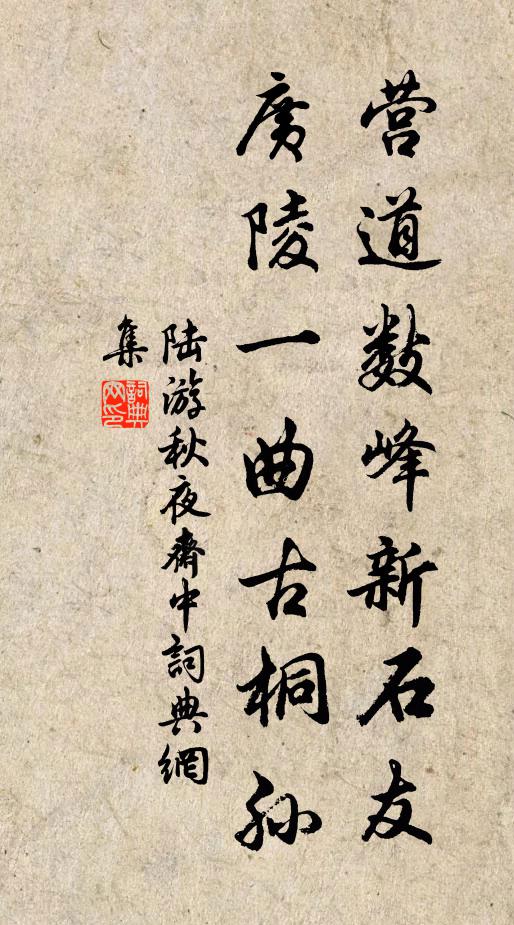 营道数峰新石友
廣陵一曲古桐孙
陆游秋夜斋中詞典網
集
詞典
网印